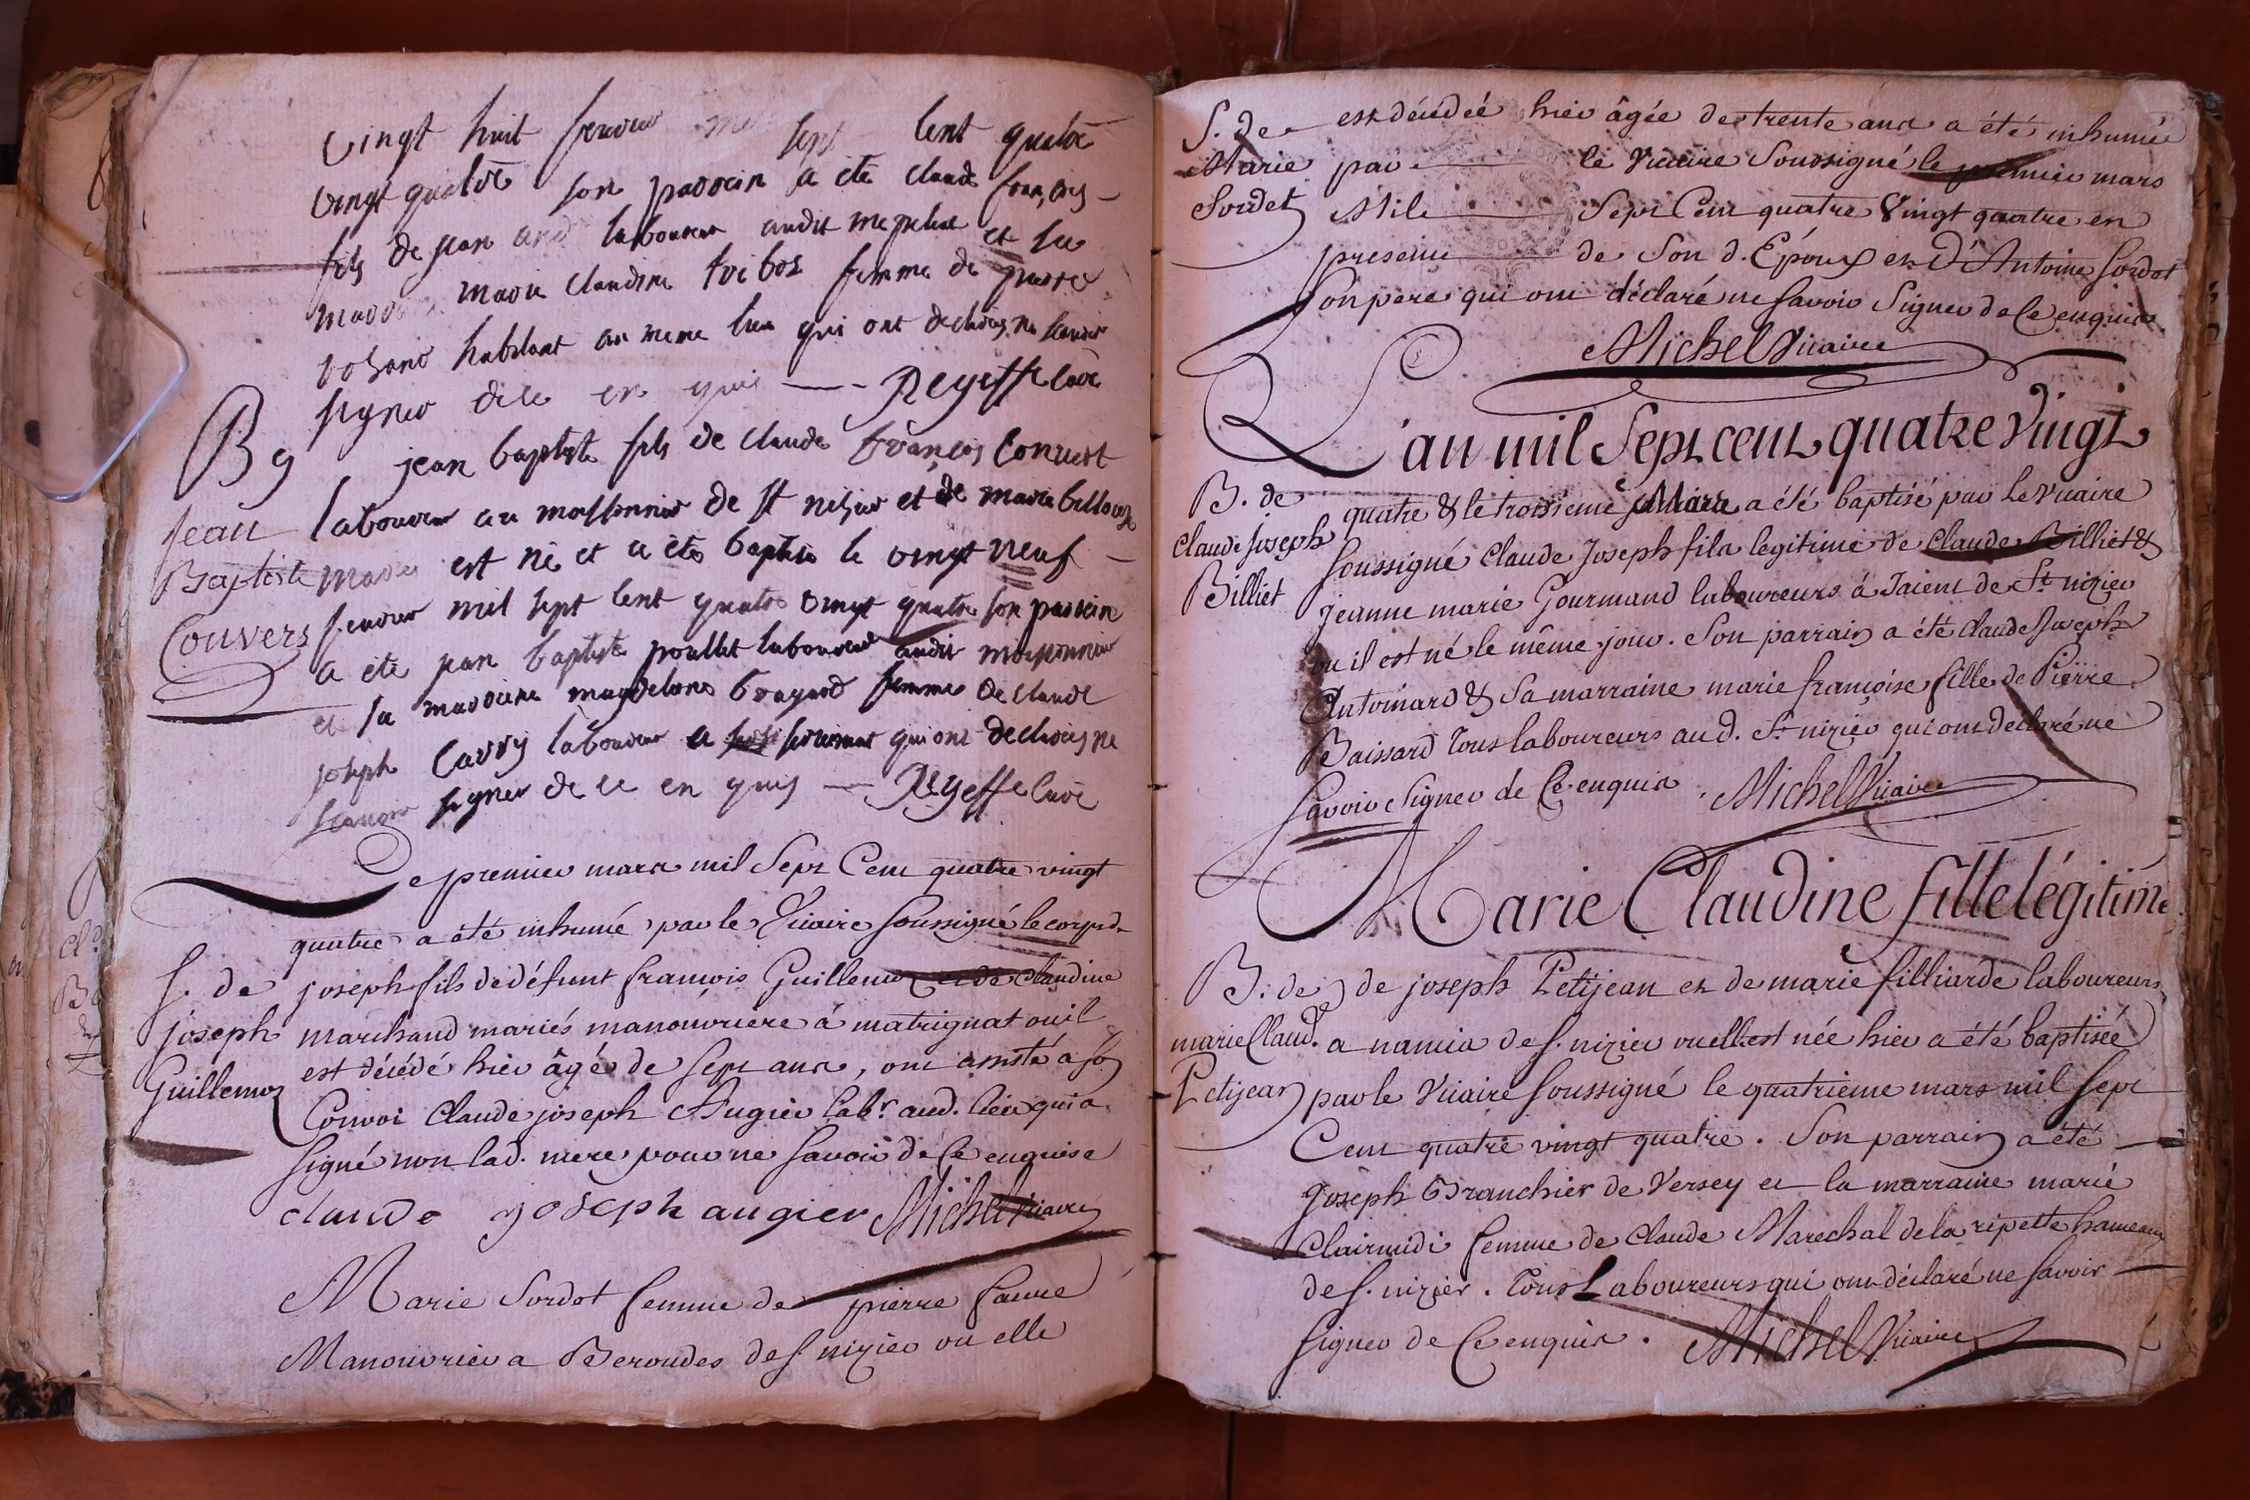 vingt huit fevrier mil sept cent quatre
vingt quatre son parrein a ete claude francois
fils de jean laboureur audit et sa
marie claudine femme de pierre
habitant au meme lieu qui ont declarez ne scavoir
signer de ce en quis Regeffe curé
B g
jean baptiste fils de claude francois Convert
Jean
Baptiste
Convers
laboureur au moissonnier de St nisier et de marie
mariés est né et a ete baptisé le vingt neuf
fevrier mil sept cent quatre vingt quatre son parrein
a ete jean baptiste poullet laboureur audit moissonnier
et sa marreine magdelene brayard femme de claude
joseph Carry laboureur a qui ont declarez ne
scavoir signer de ce en quis Regeffe curé
Le premier mars mil Sept Cent quatre vingt
quatre a été inhumé par le Vicaire soussigné le corps d.
S. de
joseph
Guillemoz
joseph fils de défunt francois Guillemoz et de claudine
marchand mariés manouvriers à matrignat ou il
est décédé hier âgé de sept ans, ont assisté a so
Convoi Claude joseph Augier labr. aud. lieu qui a
signé non lad. mere pour ne savoir de Ce enquise
claude joseph augier Michel Vicaire
Marie Sordot femme de pierre faure
Manouvrier a Beroudes de S. nizier ou elle
S. de
Marie
Sordet
est décédée hier âgée de trente ans a été inhumée
par le Vicaire Soussigné le premier mars
Mil Sept Cent quatre Vingt quatre en
presence de Son d. Epoux et D'Antoine Sordot
Son pere qui ont déclaré ne savoir Signer de Ce enquis
Michel Vicaire
L'an mil Sept cent quatre Vingt
B. de
Claude Joseph
Billiet
quatre & le troisieme Mars a été baptisé par le vicaire
soussigné Claude Joseph fils legitime de Claude Billiet &
jeanne marie Gourmand laboureurs à Jaient de St. nizier
ou il est né le même jour. Son parrain a été claude Joseph
Antoinard & Sa marraine marie françoise fille de Pierre
Baissard tous laboureurs aud. St. nizier qui ont declaré ne
Savoir Signer de Ce enquis. Michel Vicaire
Marie Claudine fille légitime
B. de
marie Claud.
Petijean
de joseph Petijean et de marie filliarde laboureurs
a namia de S. nizier ou elle est née hier a été baptisée
par le Vicaire soussigné le quatrieme mars mil sept
Cent quatre vingt quatre. Son parrain a été
Joseph Branchier de Versey et la marraine marie
Clairmidi femme de Claude Marechal de la ripette hameau
de S. nizier. Tous Laboureurs qui ont déclaré ne savoir
signer de Ce enquis. Michel Vicaire